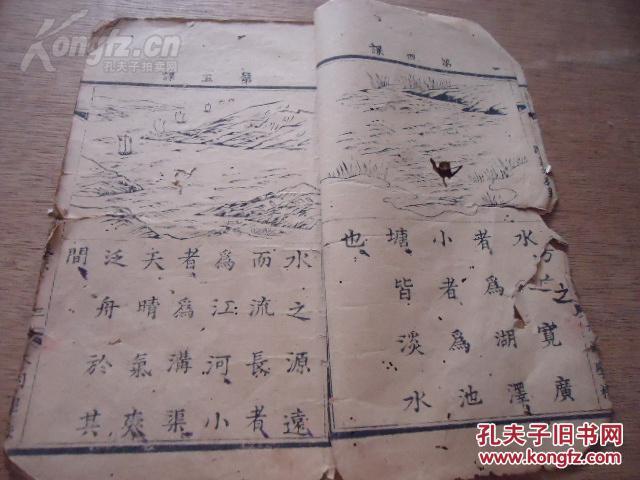 第四課
水之寬廣
者為湖澤
小者為池
塘皆淡水
也
第五課
水之源遠
而流長者
為江河小
者為溝渠
天晴氣爽
泛舟於其
間
Kongfz.cn
孔夫子拍卖网
孔夫子旧书网
www.kongfz.com